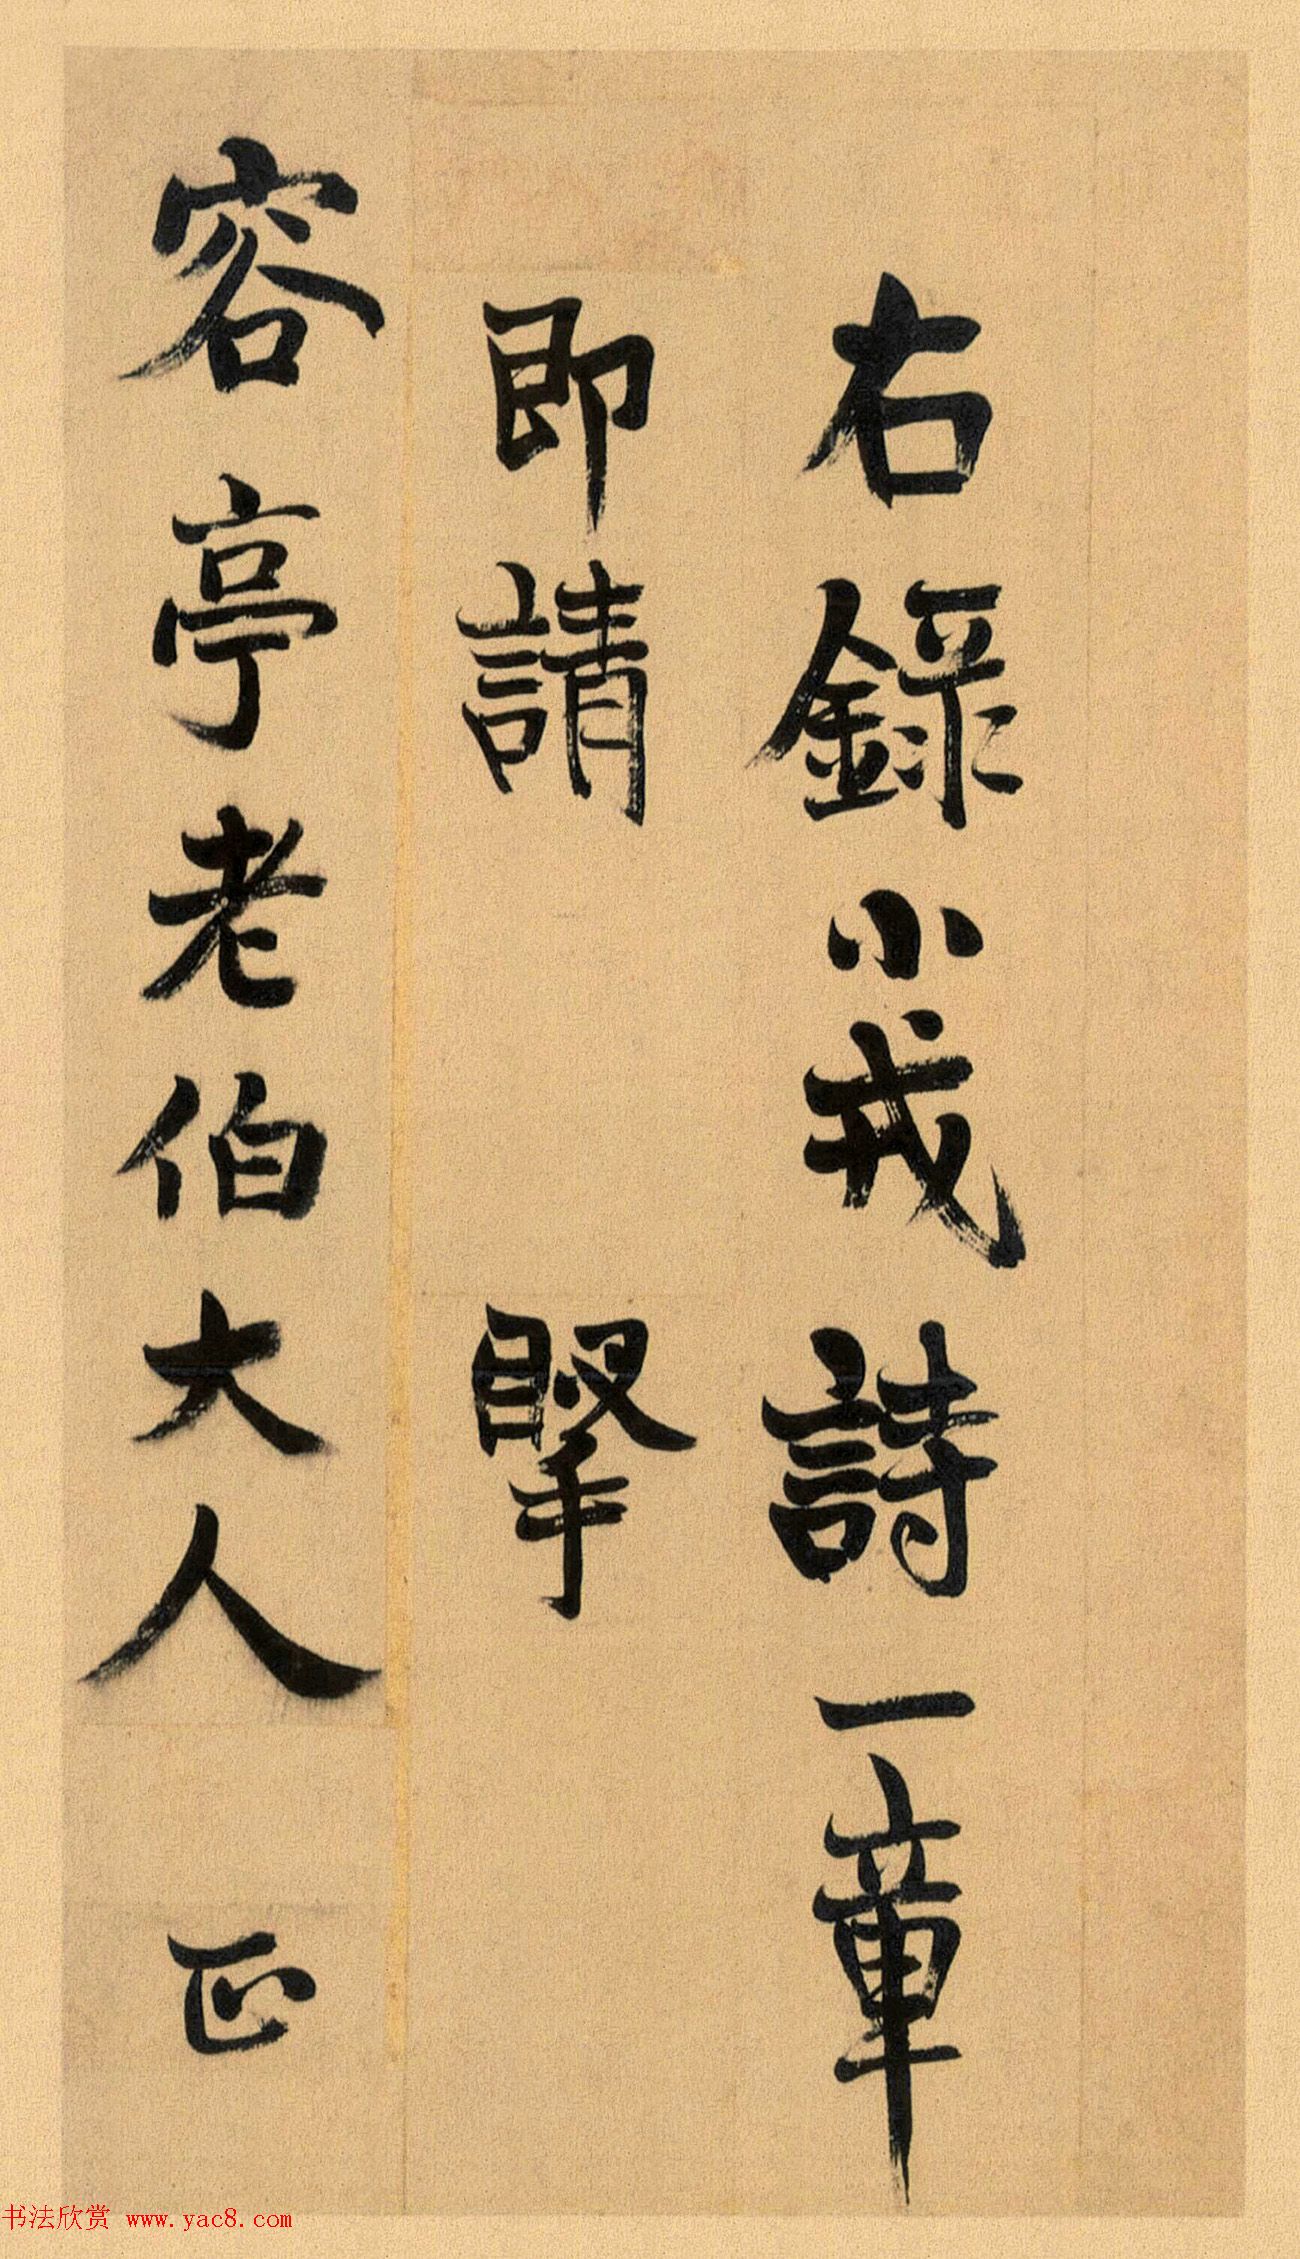 右錄小戎詩一章
即請 掔
容亭老伯大人 正
书法欣赏 www.yac8.com